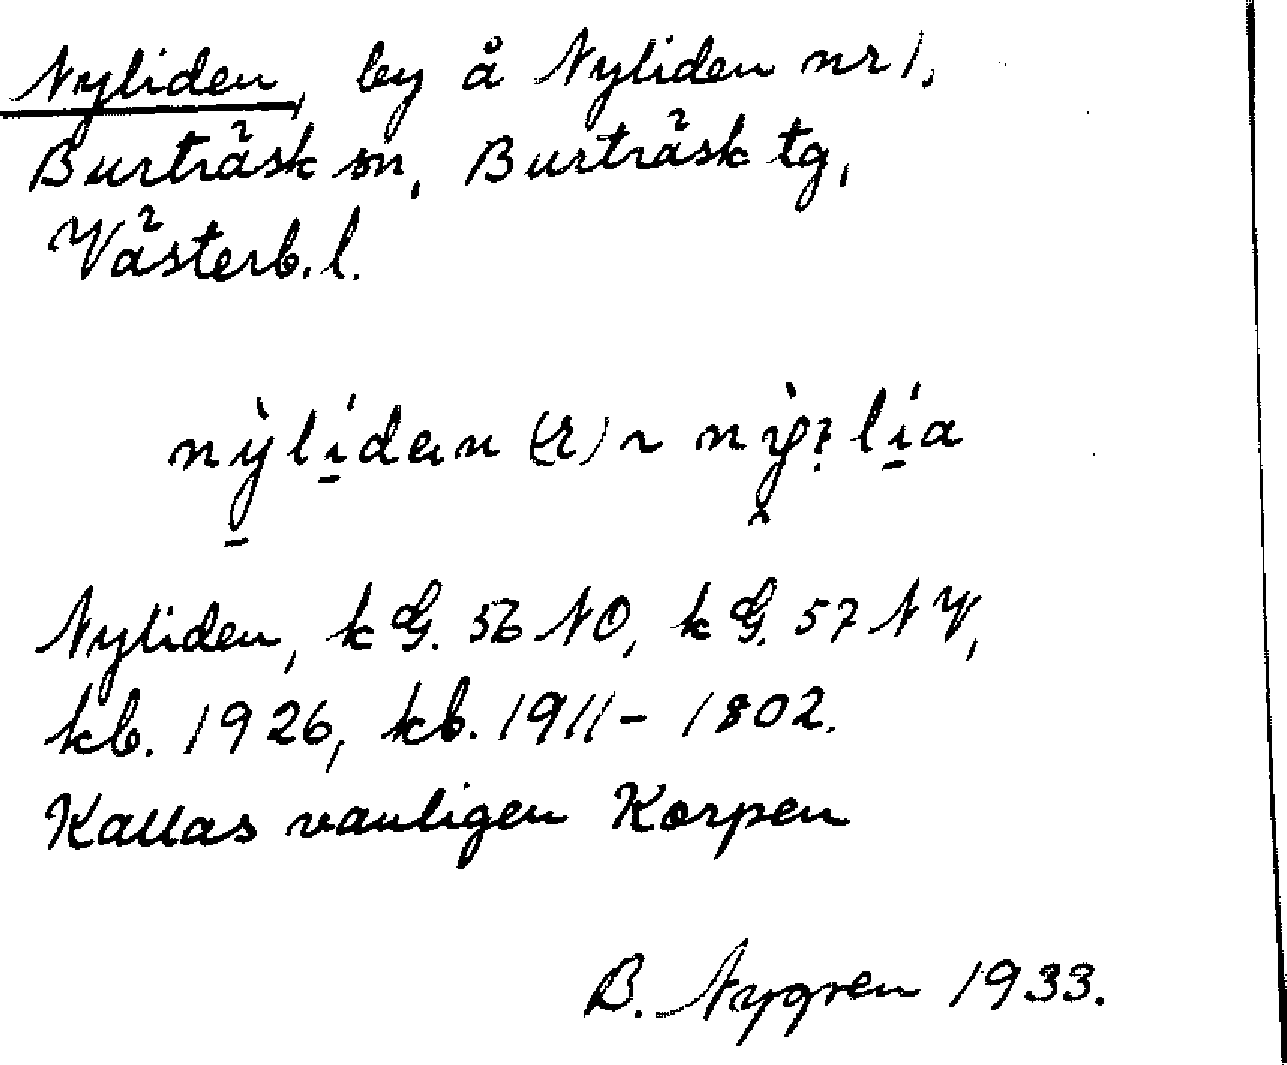 Nyliden, by å Nyliden nr 1,
Burträsk sn, Burträsk tg,
Västerb. l.
nỳlídan (r) ~ nỳ:lía
Nyliden, k G. 56 NO, k G. 57 NV,
kb. 1926, kb. 1911–1802.
Kallas vanligen Korpen
B. Nygren 1933.